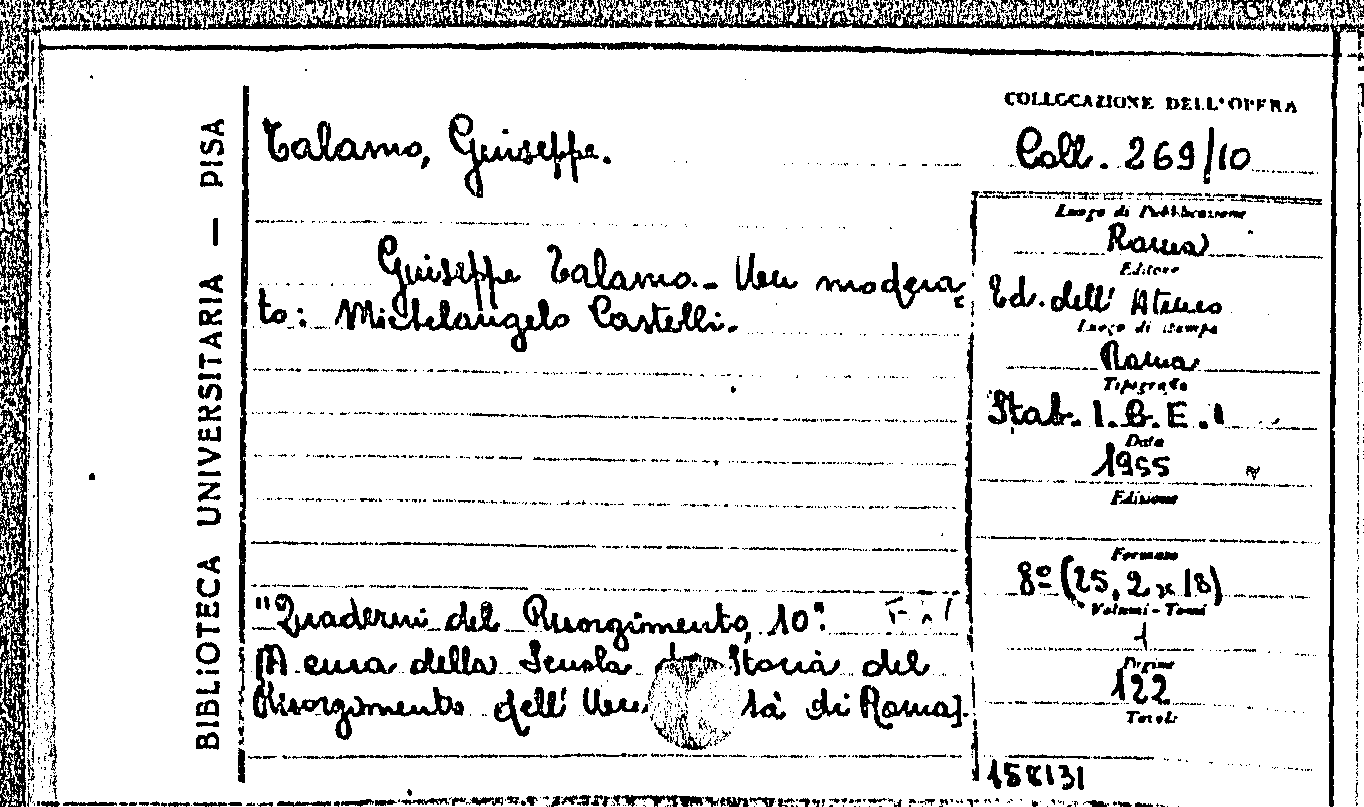 BIBLIOTECA UNIVERSITARIA — PISA
COLLOCAZIONE DELL'OPERA
Talamo, Giuseppe.
Coll. 269/10
Luogo di Pubblicazione
Roma
Giuseppe Talamo. - Un modera-
to: Michelangelo Castelli.
Editore
Ed. dell' Ateneo
Luogo di stampa
Roma
Tipografo
Stab. I.G.E.I
Data
1955
Edizione
Formato
8º (25,2 x 18)
Volumi - Tomi
1
Pagine
122
Tavole
"Quaderni del Risorgimento, 10".
[A cura della Scuola di Storia del
Risorgimento dell' Uni sità di Roma].
158131